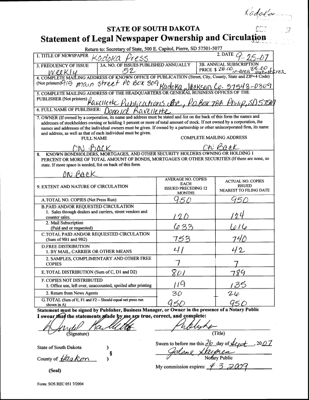 Kadoka
STATE OF SOUTH DAKOTA
Statement of Legal Newspaper Ownership and Circulation
Return to: Secretary of State, 500 E. Capitol, Pierre, SD 57501-5077
1. TITLE OF NEWSPAPER Kadoka Press 2. DATE 9-25-07
3. FREQUENCY OF ISSUE Weekly 3A. NO. OF ISSUES PUBLISHED ANNUALLY 52 3B. ANNUAL SUBSCRIPTION PRICE $
6. COMPLETE MAILING ADDRESS OF KNOWN OFFICE OF PUBLICATION (Street, City, County, State and ZIP+4 Code)
(Not printers) Main Street PO Box 309 Kadoka, Jackson Co. 57543-0309
5. COMPLETE MAILING ADDRESS OF THE HEADQUARTERS OR GENERAL BUSINESS OFFICES OF THE
PUBLISHER (Not printers) Ravellette Publications Inc., PO Box 788 Philip, SD 57567
6. FULL NAME OF PUBLISHER: Ravellette
7. OWNER (If owned by a corporation, its name and address must be stated and also on the back of this form the names and
addresses of stockholders owning or holding 1 percent or more of total amount of stock. If not owned by a corporation, the
names and addresses of the individual owners must be given. If owned by a partnership or other unincorporated firm, its name
and address, as well as that of each individual must be given.
FULL NAME COMPLETE MAILING ADDRESS
On Back On Back
8. KNOWN BONDHOLDERS, MORTGAGEES, AND OTHER SECURITY HOLDERS OWNING OR HOLDING 1
PERCENT OR MORE OF TOTAL AMOUNT OF BONDS, MORTGAGES OR OTHER SECURITIES (If there are none, so
state. If more space is needed, list on back of this form.
On Back
9. EXTENT AND NATURE OF CIRCULATION AVERAGE NO. COPIES EACH ISSUED PRECEDING 12 MONTHS ACTUAL NO. COPIES ISSUED NEAREST TO FILING DATE
A. TOTAL NO. COPIES (Net Press Run) 950 950
B. PAID AND/OR REQUESTED CIRCULATION
1. Sales through dealers and carriers, street vendors and
counter sales. 120 124
2. Mail Subscription
(Paid and or requested) 633 616
C. TOTAL PAID AND/OR REQUESTED CIRCULATION
(Sum of 9B1 and 9B2) 753 740
D. FREE DISTRIBUTION
1. BY MAIL, CARRIER OR OTHER MEANS 41 42
2. SAMPLES, COMPLIMENTARY AND OTHER FREE
COPIES 7 7
E. TOTAL DISTRIBUTION (Sum of C, D1 and D2) 801 789
F. COPIES NOT DISTRIBUTED
1. Office use, left over, unaccounted, spoiled after printing 119 135
2. Return from News Agents 30 26
G. TOTAL (Sum of E, F1 and F2 - Should equal net press run
shown in A) 950 950
Statement must be signed by Publisher, Business Manager, or Owner in the presence of a Notary Public
I swear that the statements made by me are true, correct, and complete:
Publisher
(Signature) (Title)
State of South Dakota )
§
County of Haakon )
Sworn to before me this day of Sept, 2007
Notary Public
(Seal)
My commission expires:
Form: SOS REC 051 7/2004